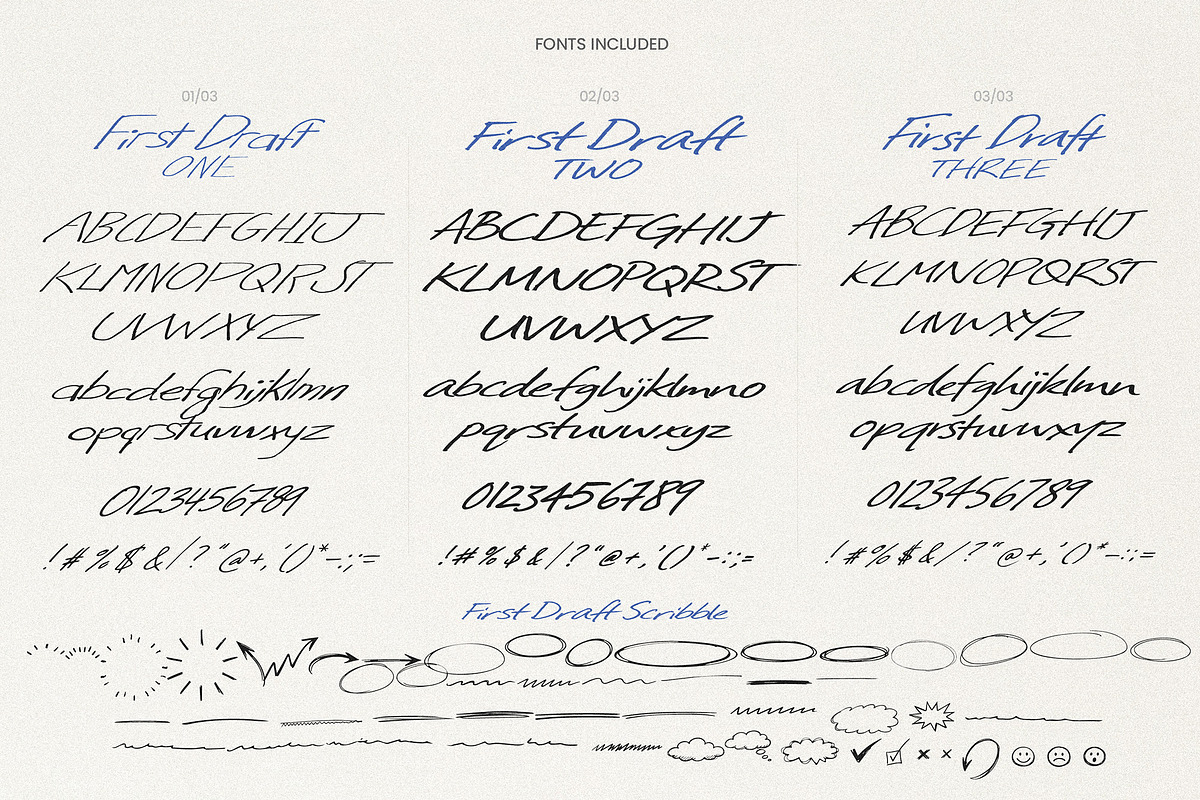 FONTS INCLUDED
01/03
First Draft
ONE
ABCDEFGHIJ
KLMNOPQRST
UVWXYZ
abcdefghijklmn
opqrstuvwxyz
0123456789
!#%$&/?"@+,'()*-:;=
02/03
First Draft
TWO
ABCDEFGHIJ
KLMNOPQRST
UVWXYZ
abcdefghijklmno
pqrstuvwxyz
0123456789
!#%$&/?"@+,'()*-:;=
03/03
First Draft
THREE
ABCDEFGHIJ
KLMNOPQRST
UVWXYZ
abcdefghijklmn
opqrstuvwxyz
0123456789
!#%$&/?"@+,'()*-:;=
First Draft Scribble